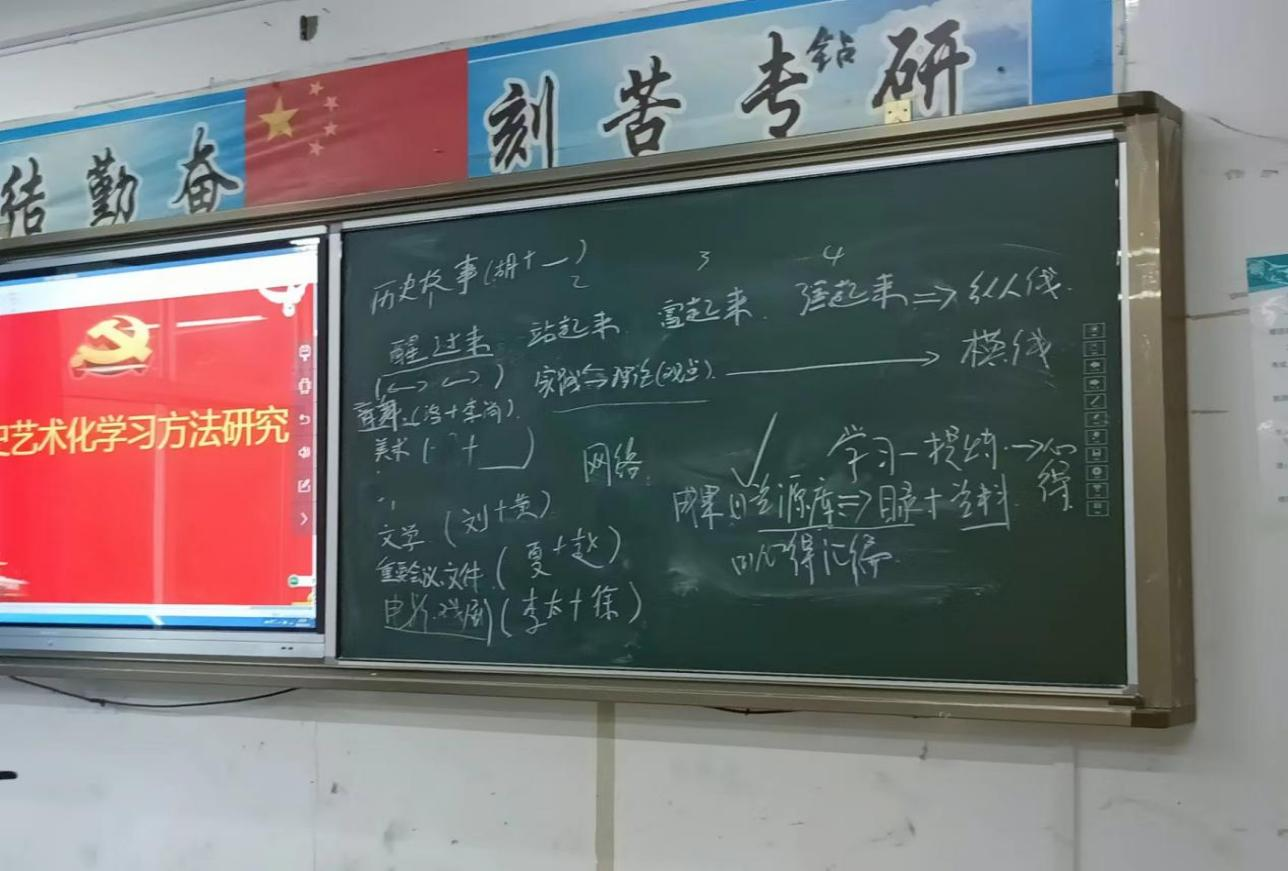 结勤奋
刻苦专钻研
史艺术化学习方法研究
历史故事(胡+一)
2 3 4
醒过来 站起来 富起来 强起来⇒纵线
实践 理论(观点) → 横线
美术( + )
网络
学习—提炼→心得
成果 资源库⇒目录+资料
心得汇编
文学(刘+黄)
重要会议、文件(夏+赵)
电影、戏剧(李 +徐)